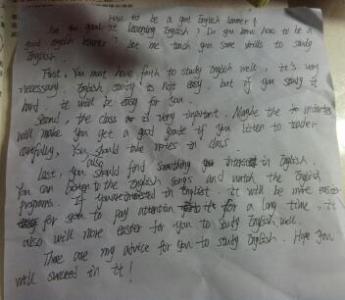 How to be a good English learner?
Are you good at learning English? Do you know how to be a
good english learner? Let me teach you some skills to study
English.
First, You must have faith to study English well. It's very
necessary. English study is not easy. but if you study it
hard. it will be easy for you.
Second, the class is very important. Maybe the
will make you get a good grade if you listen to teacher
carefully, You should take notes in class.
Last, you should also find something you interest in English.
You can listen to the English songs and watch the English
programs. If you interested in English. it will be more easier
for you to pay attention to it for a long time. it
also will more easier for you to study English well.
There are my advice for you to study English. Hope you
will succeed in it!